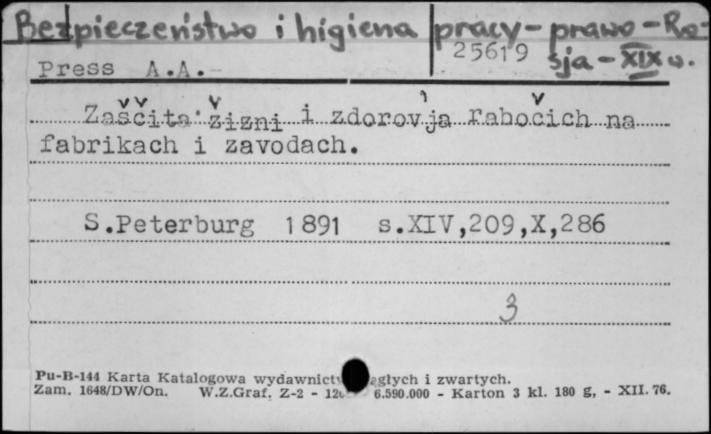 Bezpieczeństwo i higiena pracy - prawo - Ro-
sja - XIX w.
25619
Press A.A.-
Zaščita žizni i zdorov'ja rabočich na
fabrikach i zavodach.
S.Peterburg 1891 s.XIV,209,X,286
3
Pu-B-144 Karta Katalogowa wydawnictw i zwartych.
Zam. 1648/DW/On. W.Z.Graf. Z-2 - 6.590.000 - Karton 3 kl. 180 g, - XII. 76.